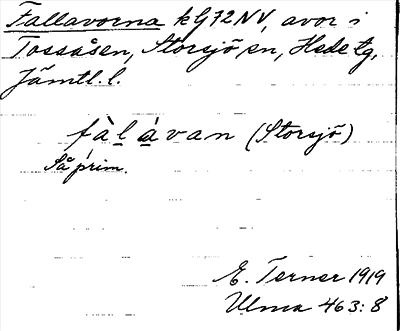 Fallavorna kG72NV, avor i
Tossåsen, Storsjö sn, Hede tg,
Jämtl. l.
fàlávan (Storsjö)
Så prim.
E. Terner 1919
Ulma 463:8